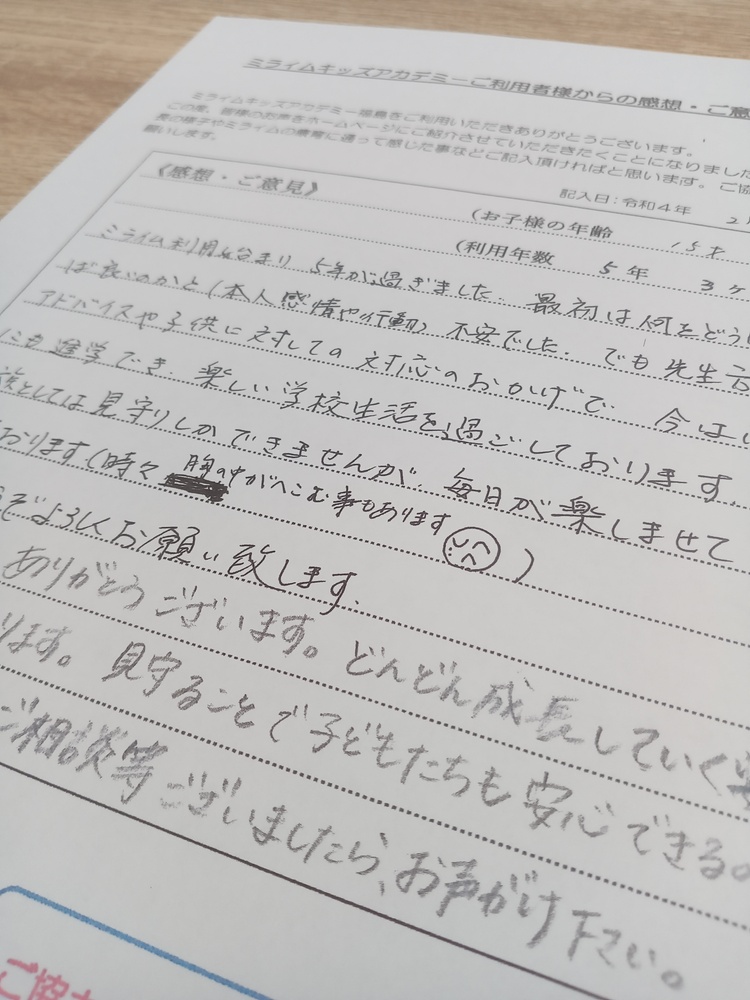 ミライムキッズアカデミーご利用者様からの感想・ご意
ミライムキッズアカデミー福島をご利用いただきありがとうございます。
この度、皆様のお声をホームページにご紹介させていただきたくことになりました
長の様子やミライムの療育に通って感じた事などご記入頂ければと思います。ご協
願いします。
記入日:令和4年 2
《感想・ご意見》
(お子様の年齢 15才
(利用年数 5年 3ヶ
ミライム利用し始まり 5年が過ぎました。最初は何をどう
ば良いのかと(本人感情や行動)不安でした。でも先生
アドバイスや子供に対しての対応のおかげで、今は
にも進学でき、楽しい学校生活を過ごしております。
族としては見守りしかできませんが、毎日が楽しませて
おります(時々 胸の中がへこむ事もあります )
ぞよろしくお願い致します。
ありがとうございます。どんどん成長していく
ります。見守ることで子どもたちも安心できる
ご相談等ございましたら、お声がけ下さい。
ご協